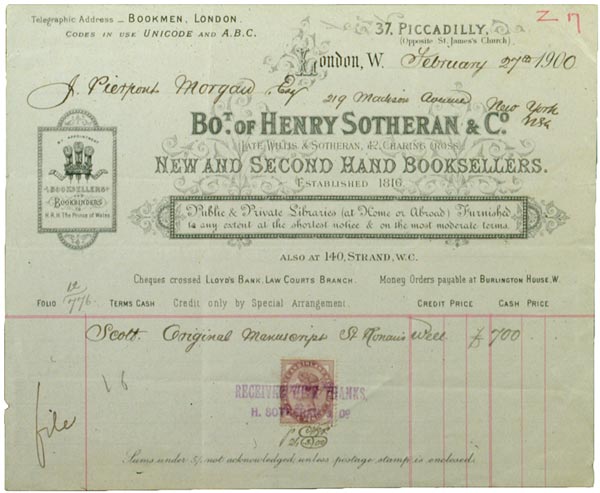 Telegraphic Address _ BOOKMEN, LONDON.
CODES IN USE UNICODE AND A.B.C.
Z 17
37, PICCADILLY,
(Opposite St. James's Church)
London, W. February 27th 1900
J. Pierpont Morgan Esq
219 Madison Avenue New York
USA
BOT. OF HENRY SOTHERAN & CO.
LATE WILLIS & SOTHERAN, 42, CHARING CROSS
NEW AND SECOND HAND BOOKSELLERS.
ESTABLISHED 1816.
BY APPOINTMENT
BOOKSELLERS
AND
BOOKBINDERS
TO
H.R.H. The Prince of Wales
Public & Private Libraries (at Home or Abroad) Furnished
to any extent at the shortest notice & on the most moderate terms.
ALSO AT 140, STRAND, W.C.
Cheques crossed LLOYD'S BANK, LAW COURTS BRANCH. Money Orders payable at BURLINGTON HOUSE, W.
FOLIO 12/776. TERMS CASH Credit only by Special Arrangement. CREDIT PRICE CASH PRICE
Scott. Original Manuscript St Ronan's Well £ 700
16
RECEIVED WITH THANKS,
H. SOTHERAN & CO
file
Sums under 5/- not acknowledged, unless postage stamp is enclosed.